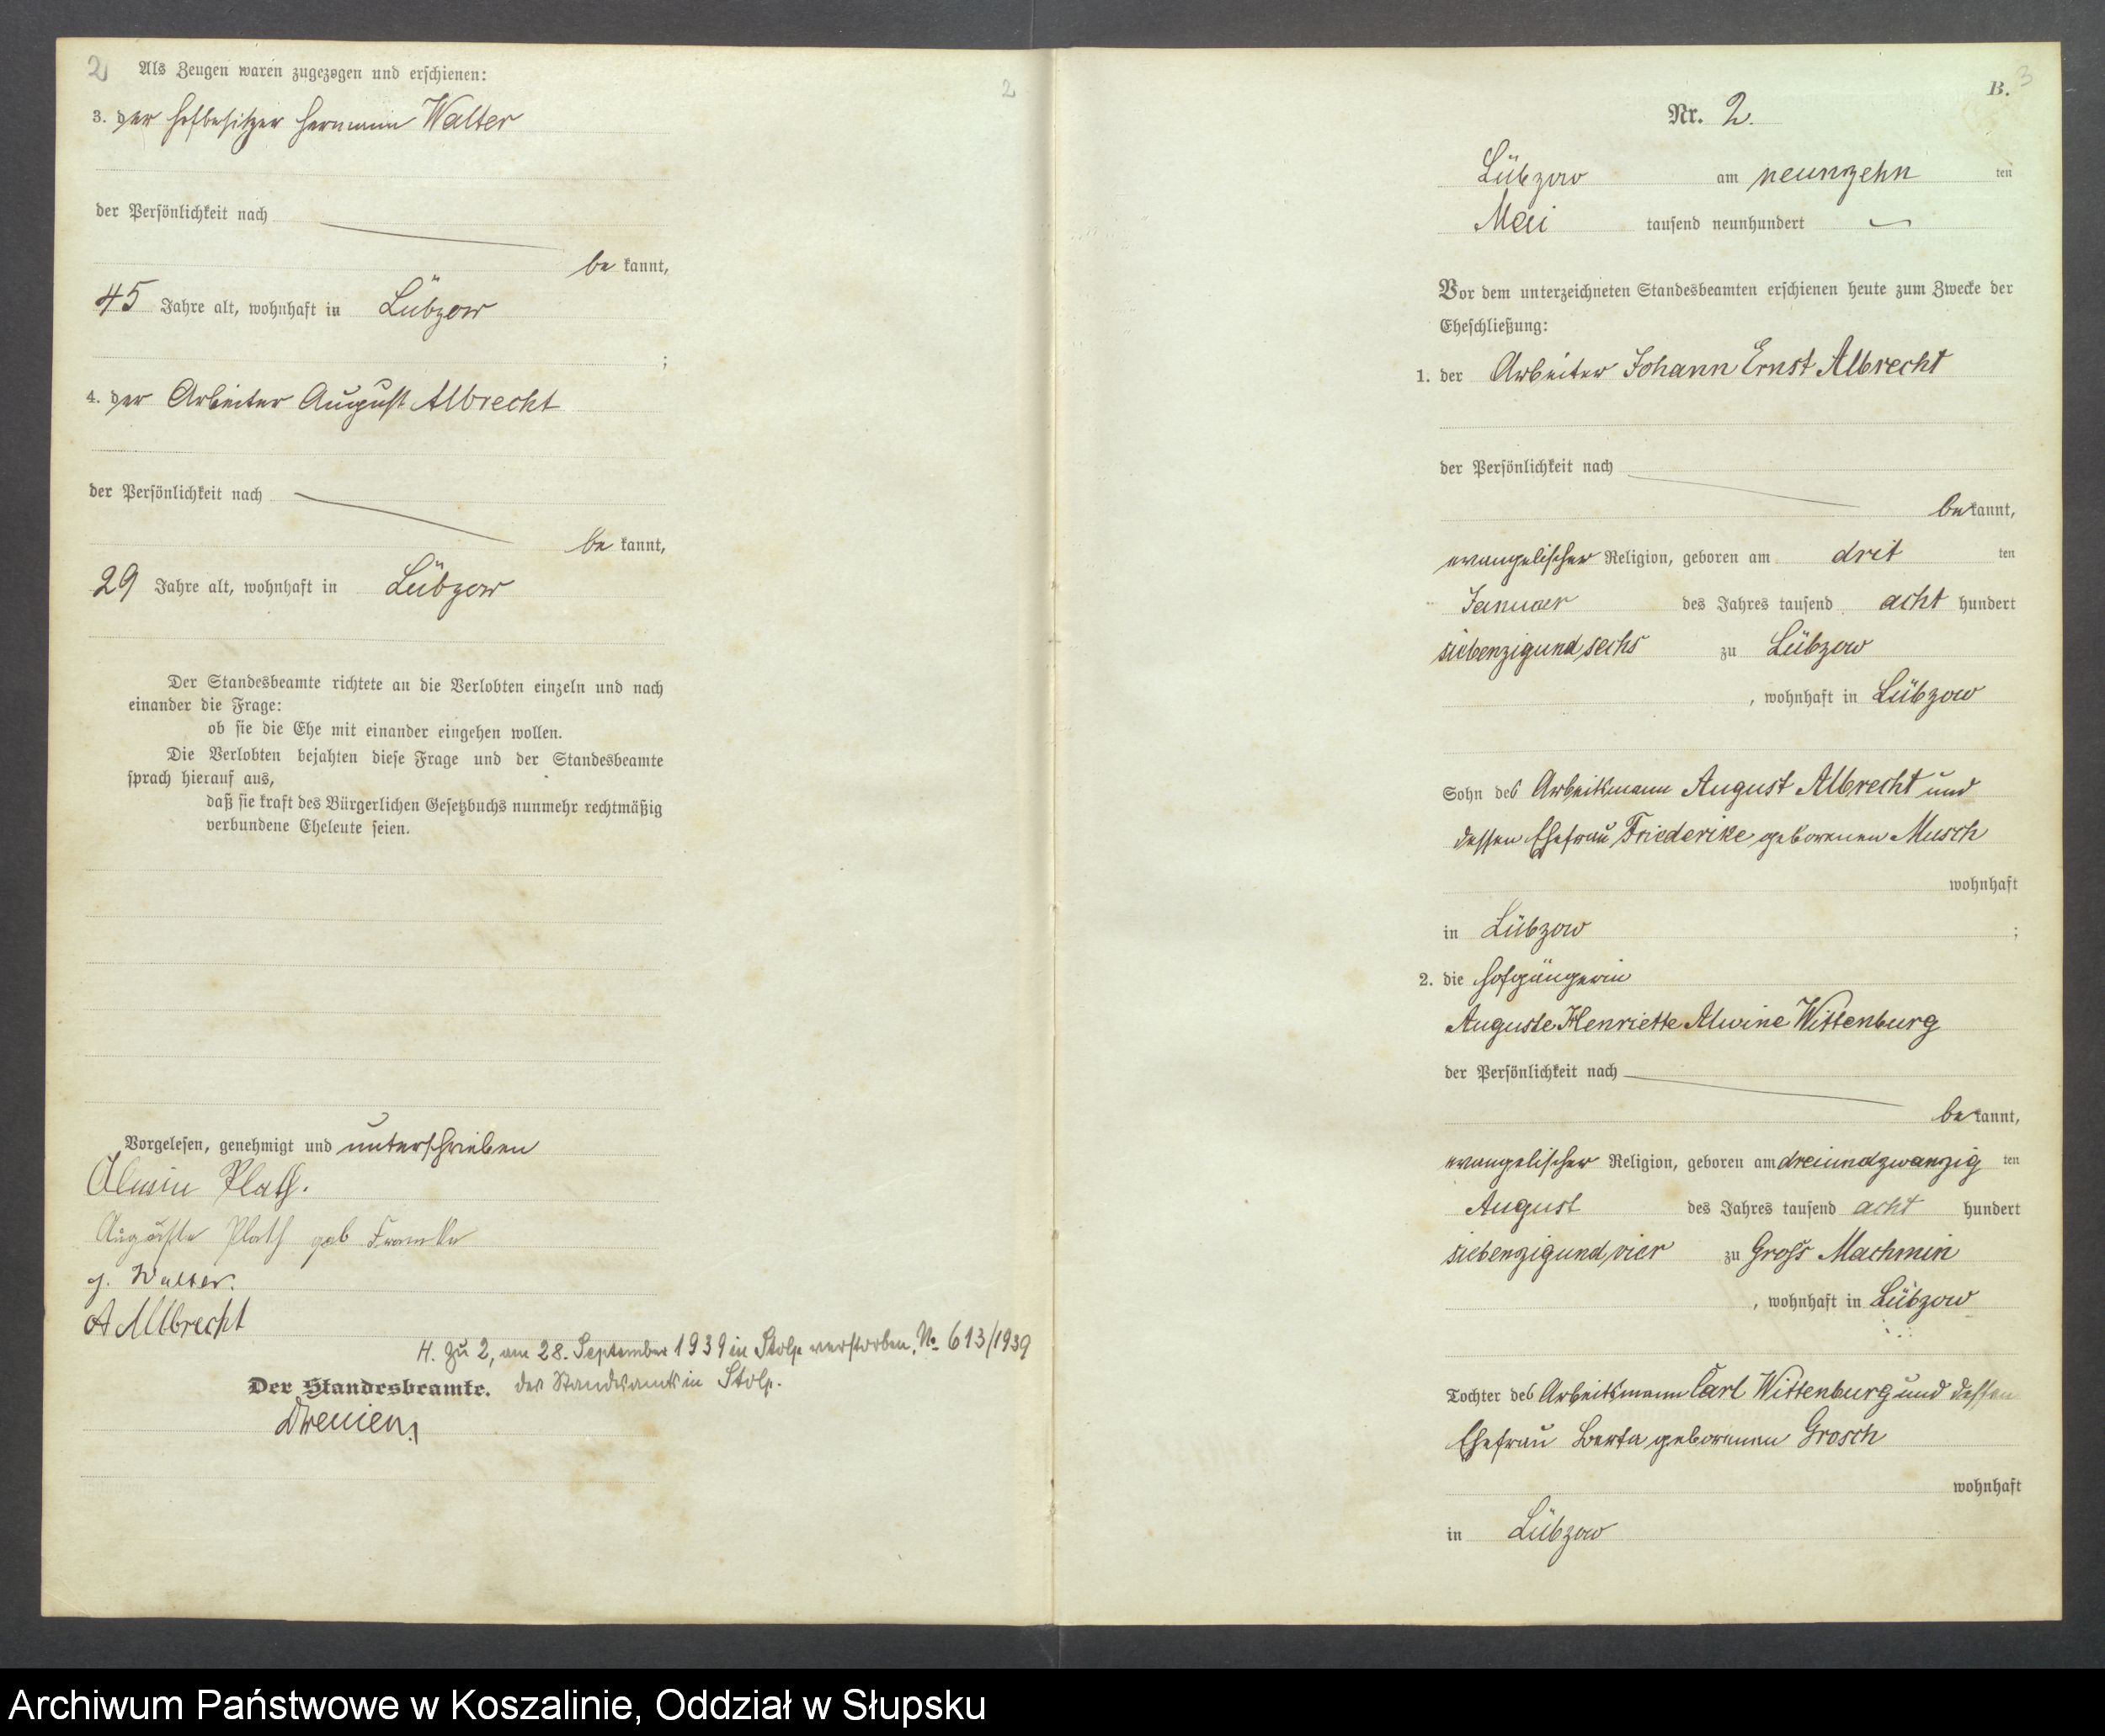 2
Als Zeugen waren zugezogen und erschienen:
3. der Hofbesitzer Hermann Walter
der Persönlichkeit nach
be kannt,
45 Jahre alt, wohnhaft in Lübzow
;
4. der Arbeiter August Albrecht
der Persönlichkeit nach
be kannt,
29 Jahre alt, wohnhaft in Lübzow
Der Standesbeamte richtete an die Verlobten einzeln und nach
einander die Frage:
ob sie die Ehe mit einander eingehen wollen.
Die Verlobten bejahten diese Frage und der Standesbeamte
sprach hierauf aus,
daß sie kraft des Bürgerlichen Gesetzbuchs nunmehr rechtmäßig
verbundene Eheleute seien.
Vorgelesen, genehmigt und unterschrieben
Albwin Plath.
Auguste Plath geb Franke
H. Walter.
A Albrecht
H. Zu 2, am 28. September 1939 in Stolp verstorben, No 613/1939
Der Standesbeamte. des Standesamts in Stolp.
2
B. 3
Nr. 2.
Lübzow am neunzehn ten
Mai tausend neunhundert
Vor dem unterzeichneten Standesbeamten erschienen heute zum Zwecke der
Eheschließung:
1. der Arbeiter Johann Ernst Albrecht
der Persönlichkeit nach
be kannt,
evangelischer Religion, geboren am drit ten
Januar des Jahres tausend acht hundert
siebenzigund sechs zu Lübzow
, wohnhaft in Lübzow
Sohn des Arbeitsmann August Albrecht und
dessen Ehefrau Friederike geborenen Musch
wohnhaft
in Lübzow ;
2. die Hofgängerin
Auguste Henriette Alwine Wittenburg
der Persönlichkeit nach
be kannt,
evangelischer Religion, geboren am dreiundzwanzig ten
August des Jahres tausend acht hundert
siebenzigund vier zu Groß Machmin
, wohnhaft in Lübzow
Tochter des Arbeitsmann Carl Wittenburg und dessen
Ehefrau Berta geborenen Grosch
wohnhaft
in Lübzow
Archiwum Państwowe w Koszalinie, Oddział w Słupsku